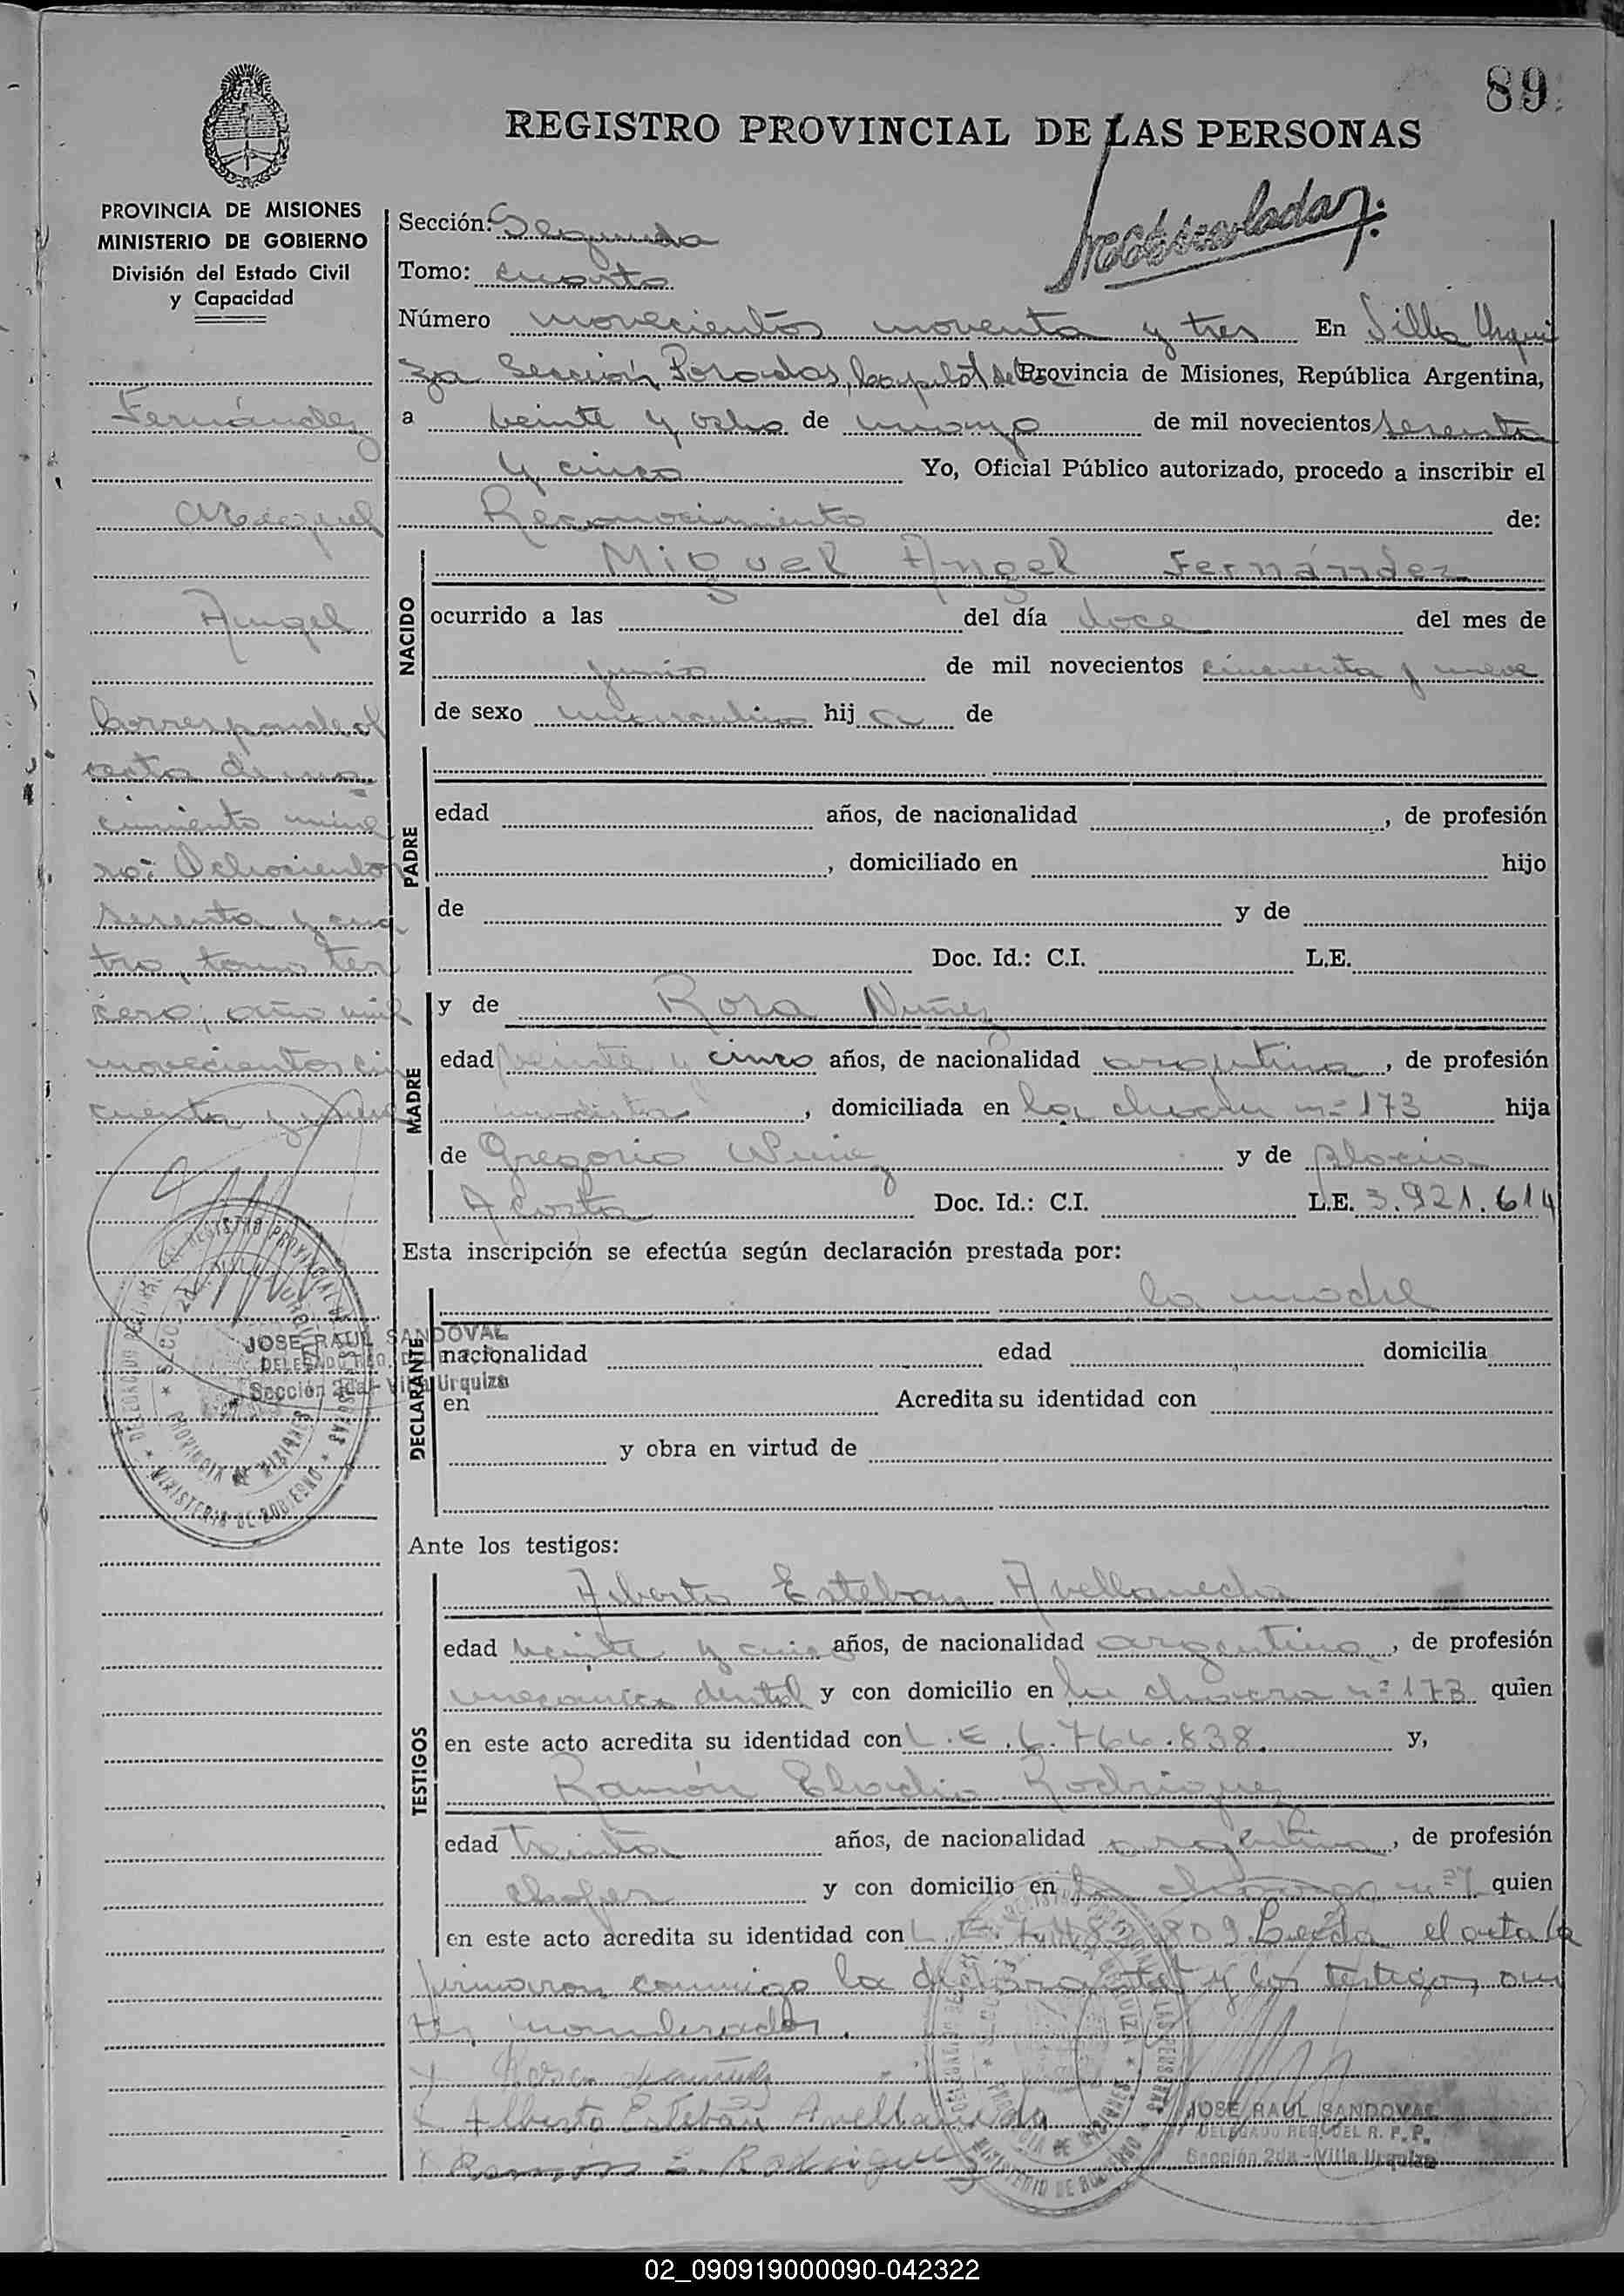 89
REGISTRO PROVINCIAL DE LAS PERSONAS
PROVINCIA DE MISIONES
MINISTERIO DE GOBIERNO
División del Estado Civil
y Capacidad
Fernández
Miguel
Angel
Corresponde al
acta de na
cimiento núme
ro: Ochocientos
sesenta y cua
tro, tomo ter
cero, año mil
novecientos cin
cuenta y nueve
JOSE RAUL SANDOVAL
Sección 2da - Villa Urquiza
Sección: Segunda
Tomo: cuarto
Número novecientos noventa y tres En Villa Urqui
za Sección Posadas, Capital de la Provincia de Misiones, República Argentina,
a veinte y ocho de mayo de mil novecientos sesenta
y cinco Yo, Oficial Público autorizado, procedo a inscribir el
Reconocimiento de:
NACIDO
Miguel Angel Fernández
ocurrido a las del día doce del mes de
junio de mil novecientos cincuenta y nueve
de sexo masculino hij de
PADRE
edad años, de nacionalidad , de profesión
, domiciliado en hijo
de y de
Doc. Id.: C.I. L.E.
MADRE
y de Rosa Nuñez
edad veinte y cinco años, de nacionalidad argentina, de profesión
modista, domiciliada en la chacra nº 173 hija
de Gregorio Nuñez y de
Acosta Doc. Id.: C.I. L.E. 3.921.614
Esta inscripción se efectúa según declaración prestada por:
DECLARANTE
la madre
nacionalidad edad domicilia
en Acredita su identidad con
y obra en virtud de
Ante los testigos:
TESTIGOS
Alberto Esteban Avellaneda
edad veinte y años, de nacionalidad argentino, de profesión
mecánico dental y con domicilio en la chacra nº 173 quien
en este acto acredita su identidad con L.E. 838. y,
Ramón Eladio Rodriguez
edad treinta años, de nacionalidad argentino, de profesión
chofer y con domicilio en la chacra nº quien
en este acto acredita su identidad con L.E. 809 Leída el acta la
firmaron conmigo la declarante y los testigos an
tes nombrados.
Rosa
Alberto Esteban Avellaneda
Ramón E. Rodriguez
JOSE RAUL SANDOVAL
DELEGADO REG. DEL R. P. P.
Sección 2da - Villa Urquiza
02_090919000090-042322